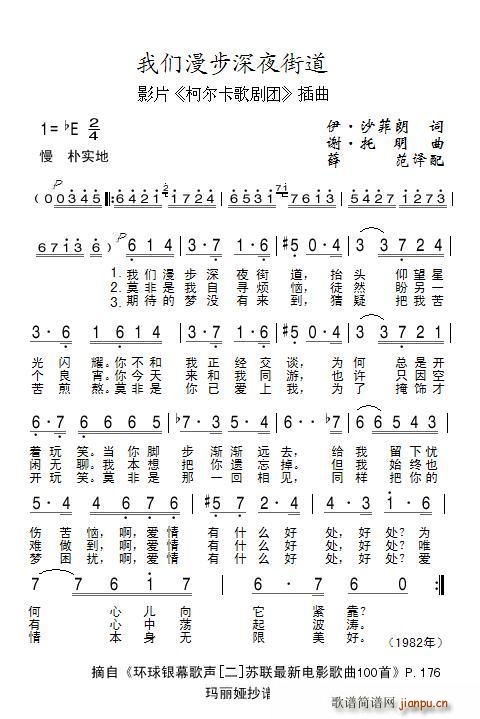 我们漫步深夜街道
影片《柯尔卡歌剧团》插曲
1=♭E 2/4
慢 朴实地
伊·沙菲朗 词
谢·托明 曲
薛范译配
(00345 ‖:6421 1724 6531 7613 5427 1273
67130 6) 614 3·7 1·6 #5 0·4 3 3724
1.我们漫步深夜街道，抬头仰望星
2.莫非是我自寻烦恼，徒然盼另一
3.期待的梦没有来到，猜疑把我苦
3·6 0146 4·3 6·1 7 0·3 3217
光闪耀。你不和我正经交谈，为何总是开
个良宵。你今天来和我同游，也许只因空
苦煎熬。莫非是你已爱上我，为了掩饰才
6·7 6665 ♭7 3·♭7 7·6 6 6543
着玩笑。当你脚步渐渐远去，给我留下忧
闲无聊。我本想把你遗忘掉。但我始终也
开玩笑。莫非是那一回相见，同样把你的
5·4 0224 #7·5 4·3 4·3 1·6
伤苦恼，啊，爱情有什么好处，好处？为
难做到，啊，爱情有什么好处，好处？唯
梦困扰，啊，爱情有什么好处，好处？爱
7 7 6 1 7 7 6 6 0 :‖
何心儿向它紧靠？
有心中荡起波涛。
情本身无限美好。
(1982年)
摘自《环球银幕歌声[二]苏联最新电影歌曲100首》P.176
玛丽娅抄谱
歌谱简谱网
jianpu.cn